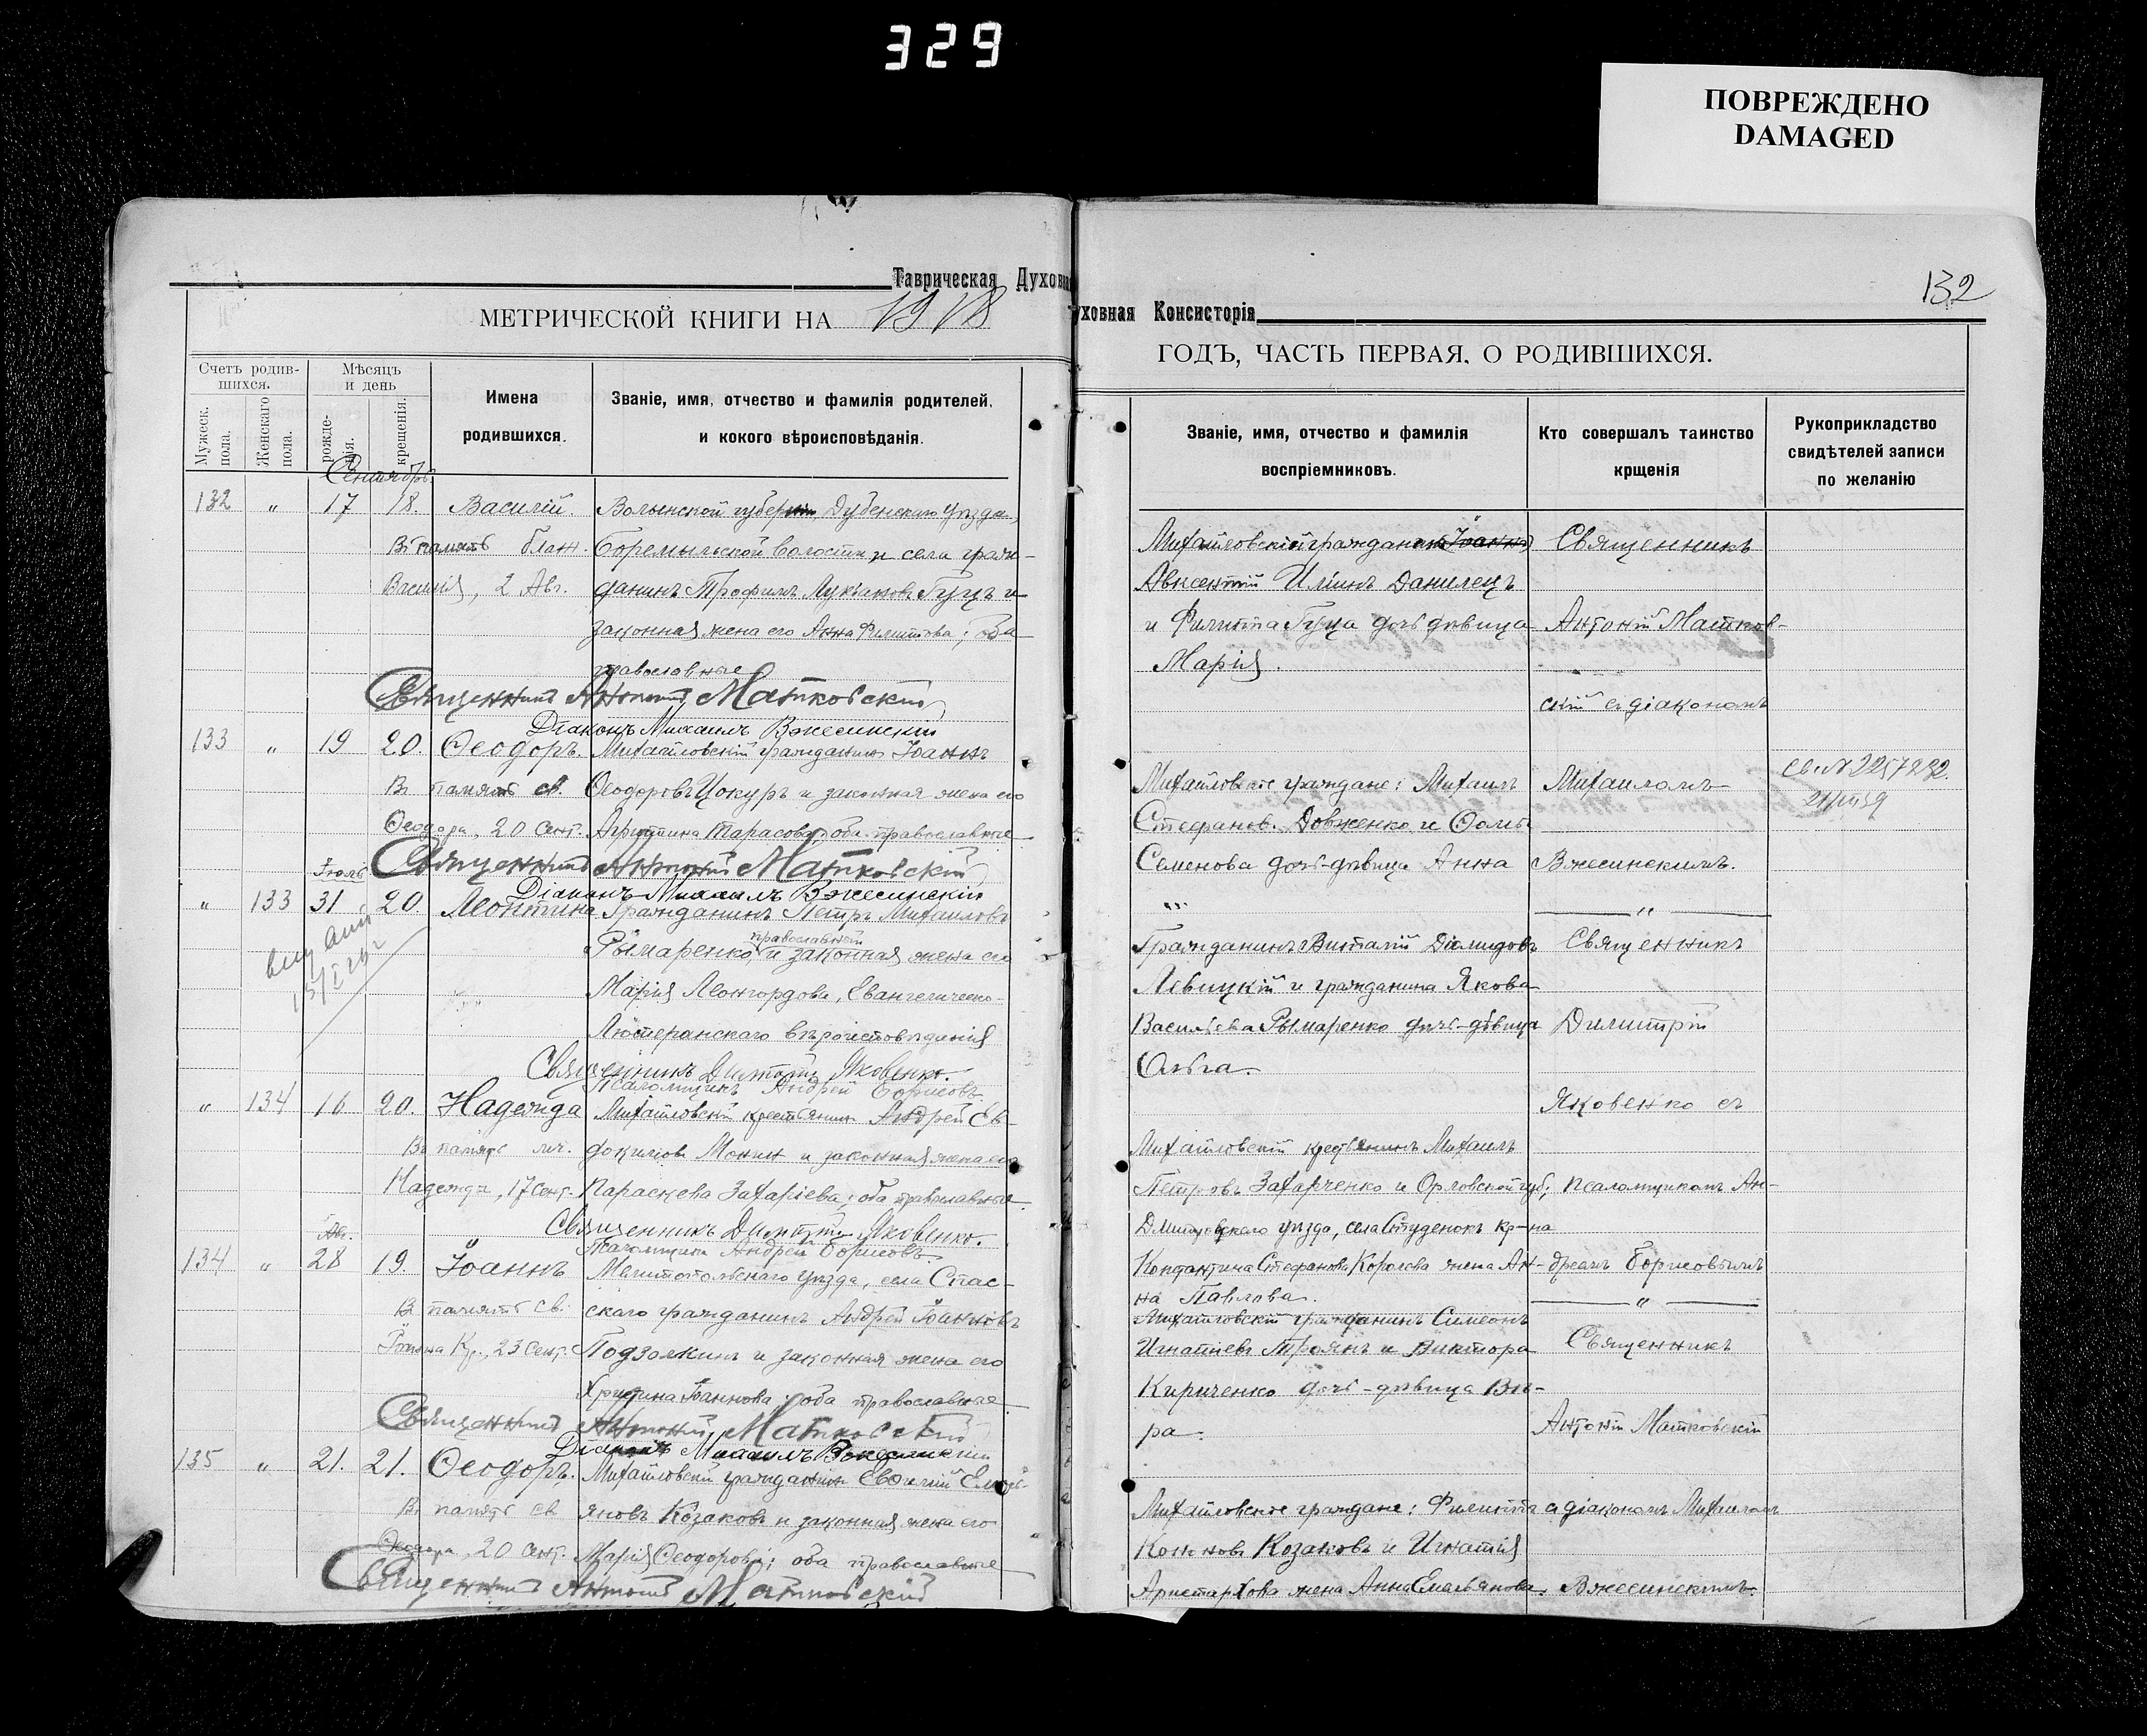 329
ПОВРЕЖДЕНО
DAMAGED
Таврическая Духовная Консисторія
132
МЕТРИЧЕСКОЙ КНИГИ НА 1918
ГОДЪ, ЧАСТЬ ПЕРВАЯ, О РОДИВШИХСЯ.
Счетъ родив-
шихся.
Мужеск. пола.
Женскаго пола.
Мѣсяцъ
и день
рожде-
нія.
крещенія.
Имена
родившихся.
Званіе, имя, отчество и фамилія родителей,
и кокого вѣроисповѣданія.
Сентябрь.
132 " 17 18. Василій. Волынской губерніи, Дубенскаго уѣзда,
Въ память блаж. Боремыльской волости и села граж-
Василія, 2 Авг. данинъ Трофимъ Лукіановъ Гуцъ и
законная жена его Анна Филиппова; оба
православные
Священникъ Антоній Матковскій
Діаконъ Михаилъ Вжесинскій
133 " 19 20. Ѳеодоръ. Михайловскій гражданинъ Іоаннъ
Въ память св. Ѳеодоровъ Цокуръ и законная жена его
Ѳеодора, 20 Сент. Агриппина Тарасова; оба православные
Священникъ Антоній Матковскій
Діаконъ Михаилъ Вжесинскій
Іюль
" 133 31 20. Леонтина Гражданинъ Петръ Михаиловъ
православный
Рымаренко, и законная жена его
Марія Леонгордова, Евангелическо-
Лютеранскаго вѣроисповѣданія
Священникъ Димитрій Яковенко.
Псаломщикъ Андрей Борисовъ.
" 134 16 20. Надежда Михайловскій крестьянинъ Андрей Ев-
Въ память мч. докимовъ Монин и законная жена его
Надежды, 17 Сент. Параскева Захаріева; оба православные.
Священникъ Димитрій Яковенко.
Псаломщикъ Андрей Борисовъ.
Авг.
134 " 28 19. Іоаннъ Мелитопольскаго уѣзда, села Спас-
Въ память св. скаго гражданинъ Андрей Іоанновъ
Іоанна Кр., 23 Сент. Подзолкинъ и законная жена его
Христина Іоаннова; оба православные
Священникъ Антоній Матковскій
Діаконъ Михаилъ Вжесинскій
135 " 21. 21. Ѳеодоръ. Михайловскій гражданинъ Евѳимій Емель-
Въ память св. яновъ Козаковъ и законная жена его
Ѳеодора, 20 Сент. Марія Ѳеодорова; оба православные
Священникъ Антоній Матковскій
Званіе, имя, отчество и фамилія
воспріемниковъ.
Кто совершалъ таинство
крщенія
Рукоприкладство
свидѣтелей записи
по желанію
Михайловскій гражданинъ Іоаннъ Священникъ
Авксентій Иліинъ Данилецъ
и Филиппа Гуца дочь дѣвица Антоній Матков-
Марія.
скій съ діакономъ
Михайловскіе граждане: Михаилъ Михаиломъ
Св. № 2257292.
Стефанов. Довженко и Ѳомы
Семенова дочь-дѣвица Анна Вжесинскимъ.
Гражданинъ Виталій Діомидовъ Священникъ
Лѣвицкій и гражданина Якова
Васильева Рымаренко дочь-дѣвица Димитрій
Ольга.
Яковенко съ
Михайловскій крестьянинъ Михаилъ
Петровъ Захарченко и Орловской губ., псаломщикомъ Ан-
Дмитровскаго уѣзда, села Студенокъ кр-на
Константина Стефанова Королева жена Ан- дреемъ Борисовымъ
на Павлова.
Михайловскій гражданинъ Симеонъ
Игнатіевъ Троянъ и Виктора Священникъ
Кириченко дочь-дѣвица Вѣ-
ра. Антоній Матковскій
Михайловскіе граждане: Филиппъ съ діакономъ Михаиломъ
Кононовъ Козаковъ и Игнатія
Аристархова жена Анна Емельянова. Вжесинскимъ.